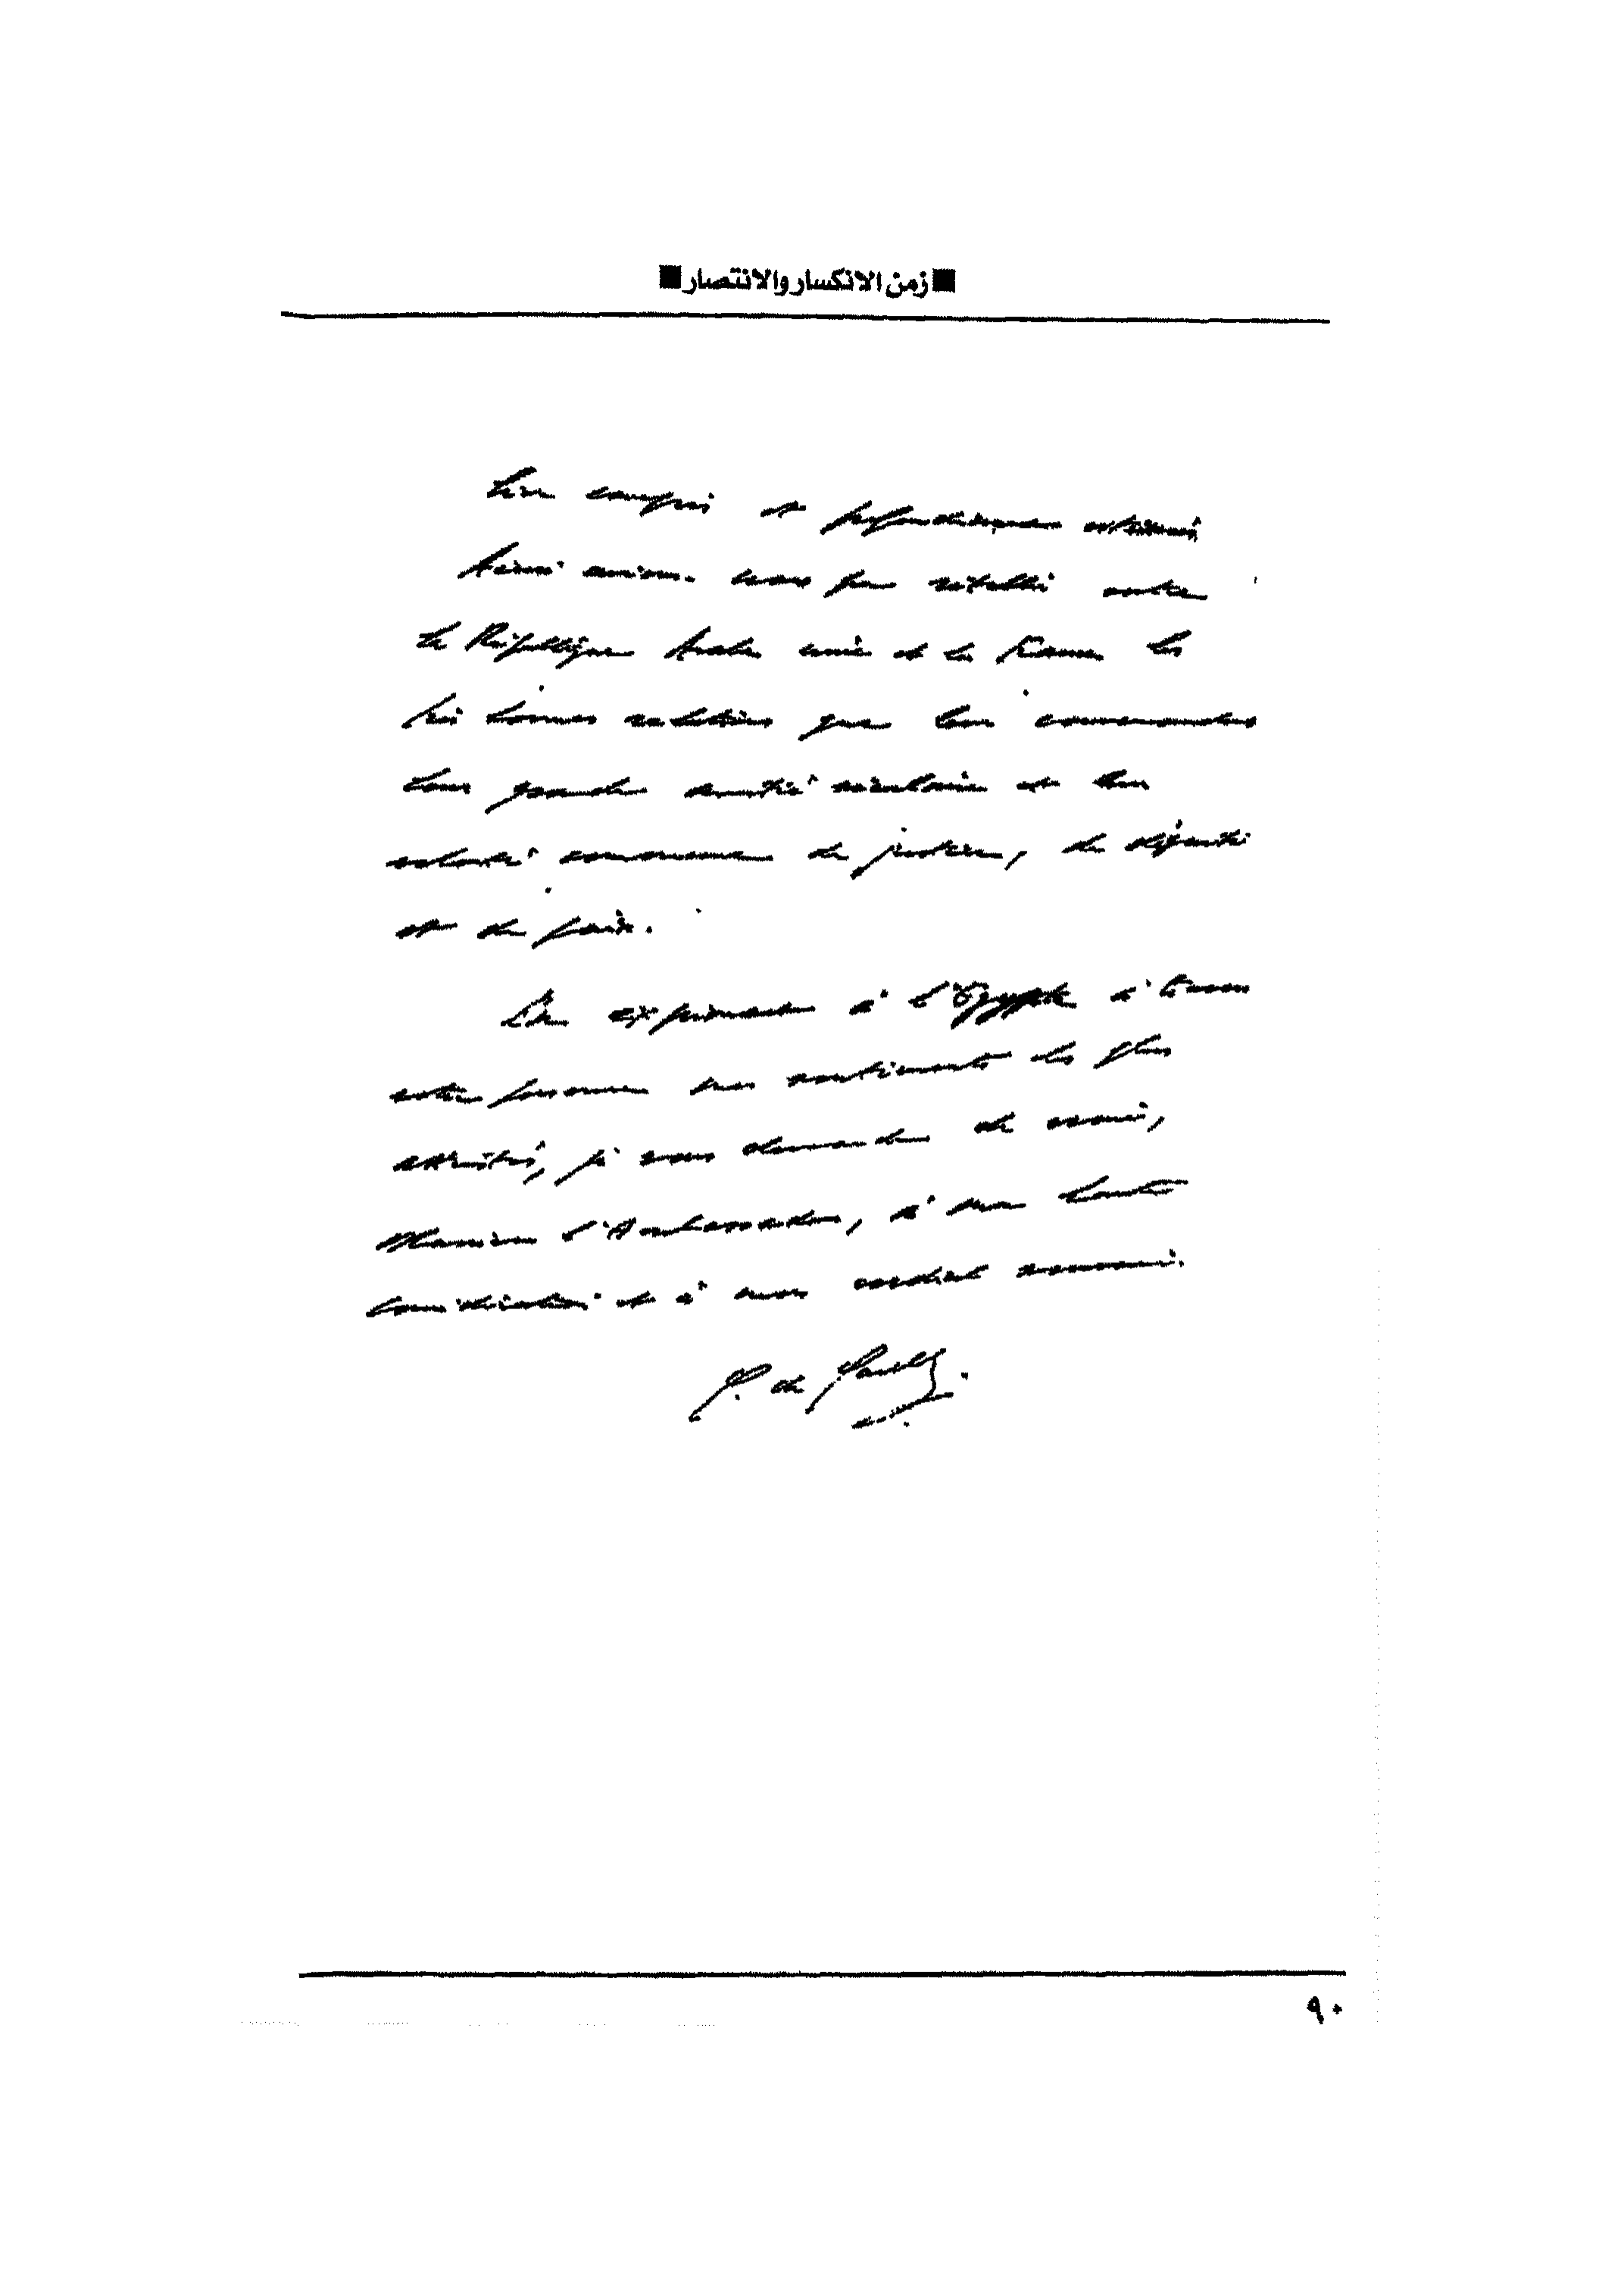 ■ زمن الانكسار والانتصار ■
bien compris et profondément estimé
Ainsi avions-nous pu rétablir entre
la République Arabe unie et la France les
très bonnes relations que leur commandent
leur grande amitié séculaire et leur
volonté commune de justice, de dignité
et de paix.
En exprimant à l'Egypte à travers
votre personne mes sentiments les plus
attristés, je vous demande de croire,
Monsieur l'Ambassadeur, à ma haute
considération et à mon cordial souvenir.
C. de Gaulle.
٩٠